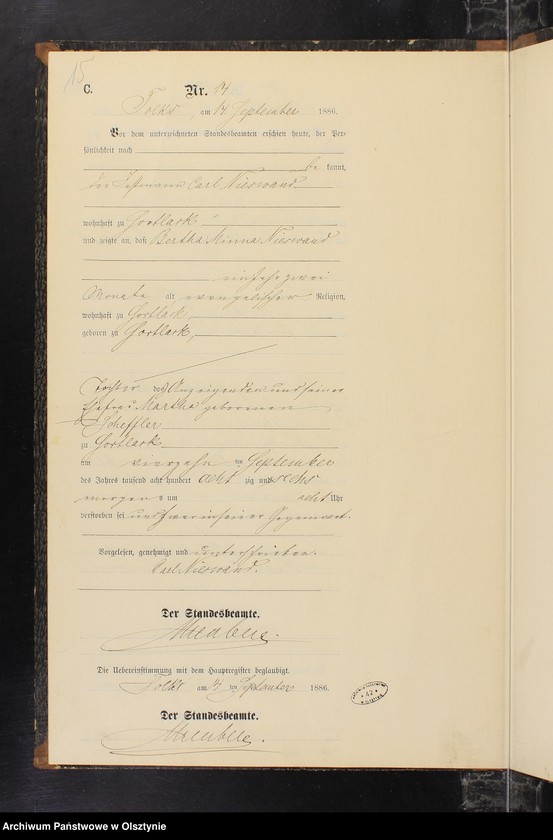 15
C.
Nr. 17
Tolks, am 17 September 1886.
Vor dem unterzeichneten Standesbeamten erschien heute, der Per-
sönlichkeit nach
be kannt,
der Carl Nieswand
wohnhaft zu Gortlack
und zeigte an, daß Bertha Minna Nieswand
ein Jahr zwei
Monate alt evangelischer Religion,
wohnhaft zu Gortlack,
geboren zu Gortlack,
Tochter des Anzeigenden und seiner
Ehefrau Martha geborenen
Scheffler
zu Gortlack
am vierzehn ten September
des Jahres tausend acht hundert acht zig und sechs
morgens um acht Uhr
verstorben sei und zwar in seiner Gegenwart.
Vorgelesen, genehmigt und unterschrieben.
Carl Nieswand.
Der Standesbeamte.
Die Uebereinstimmung mit dem Hauptregister beglaubigt.
Tolks am 17 ten September 1886.
Der Standesbeamte.
Archiwum Państwowe w Olsztynie